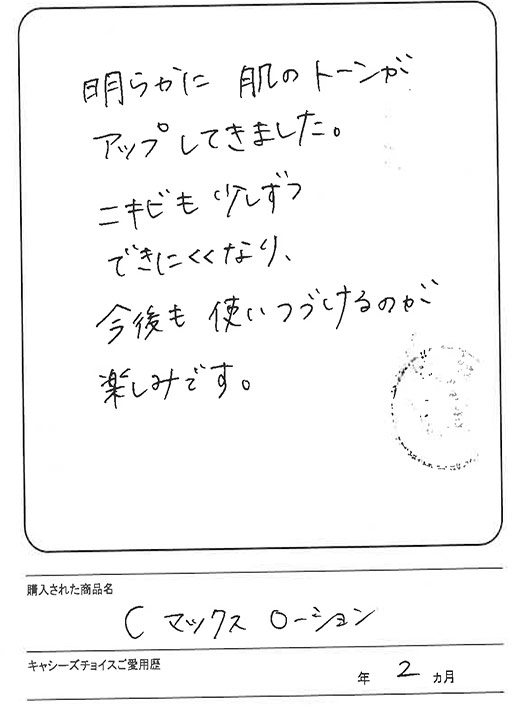 明らかに 肌のトーンが
アップしてきました。
ニキビも 少しずつ
できにくくなり、
今後も 使いつづけるのが
楽しみです。
購入された商品名
C マックス ローション
キャシーズチョイスご愛用歴
年 2 ヵ月